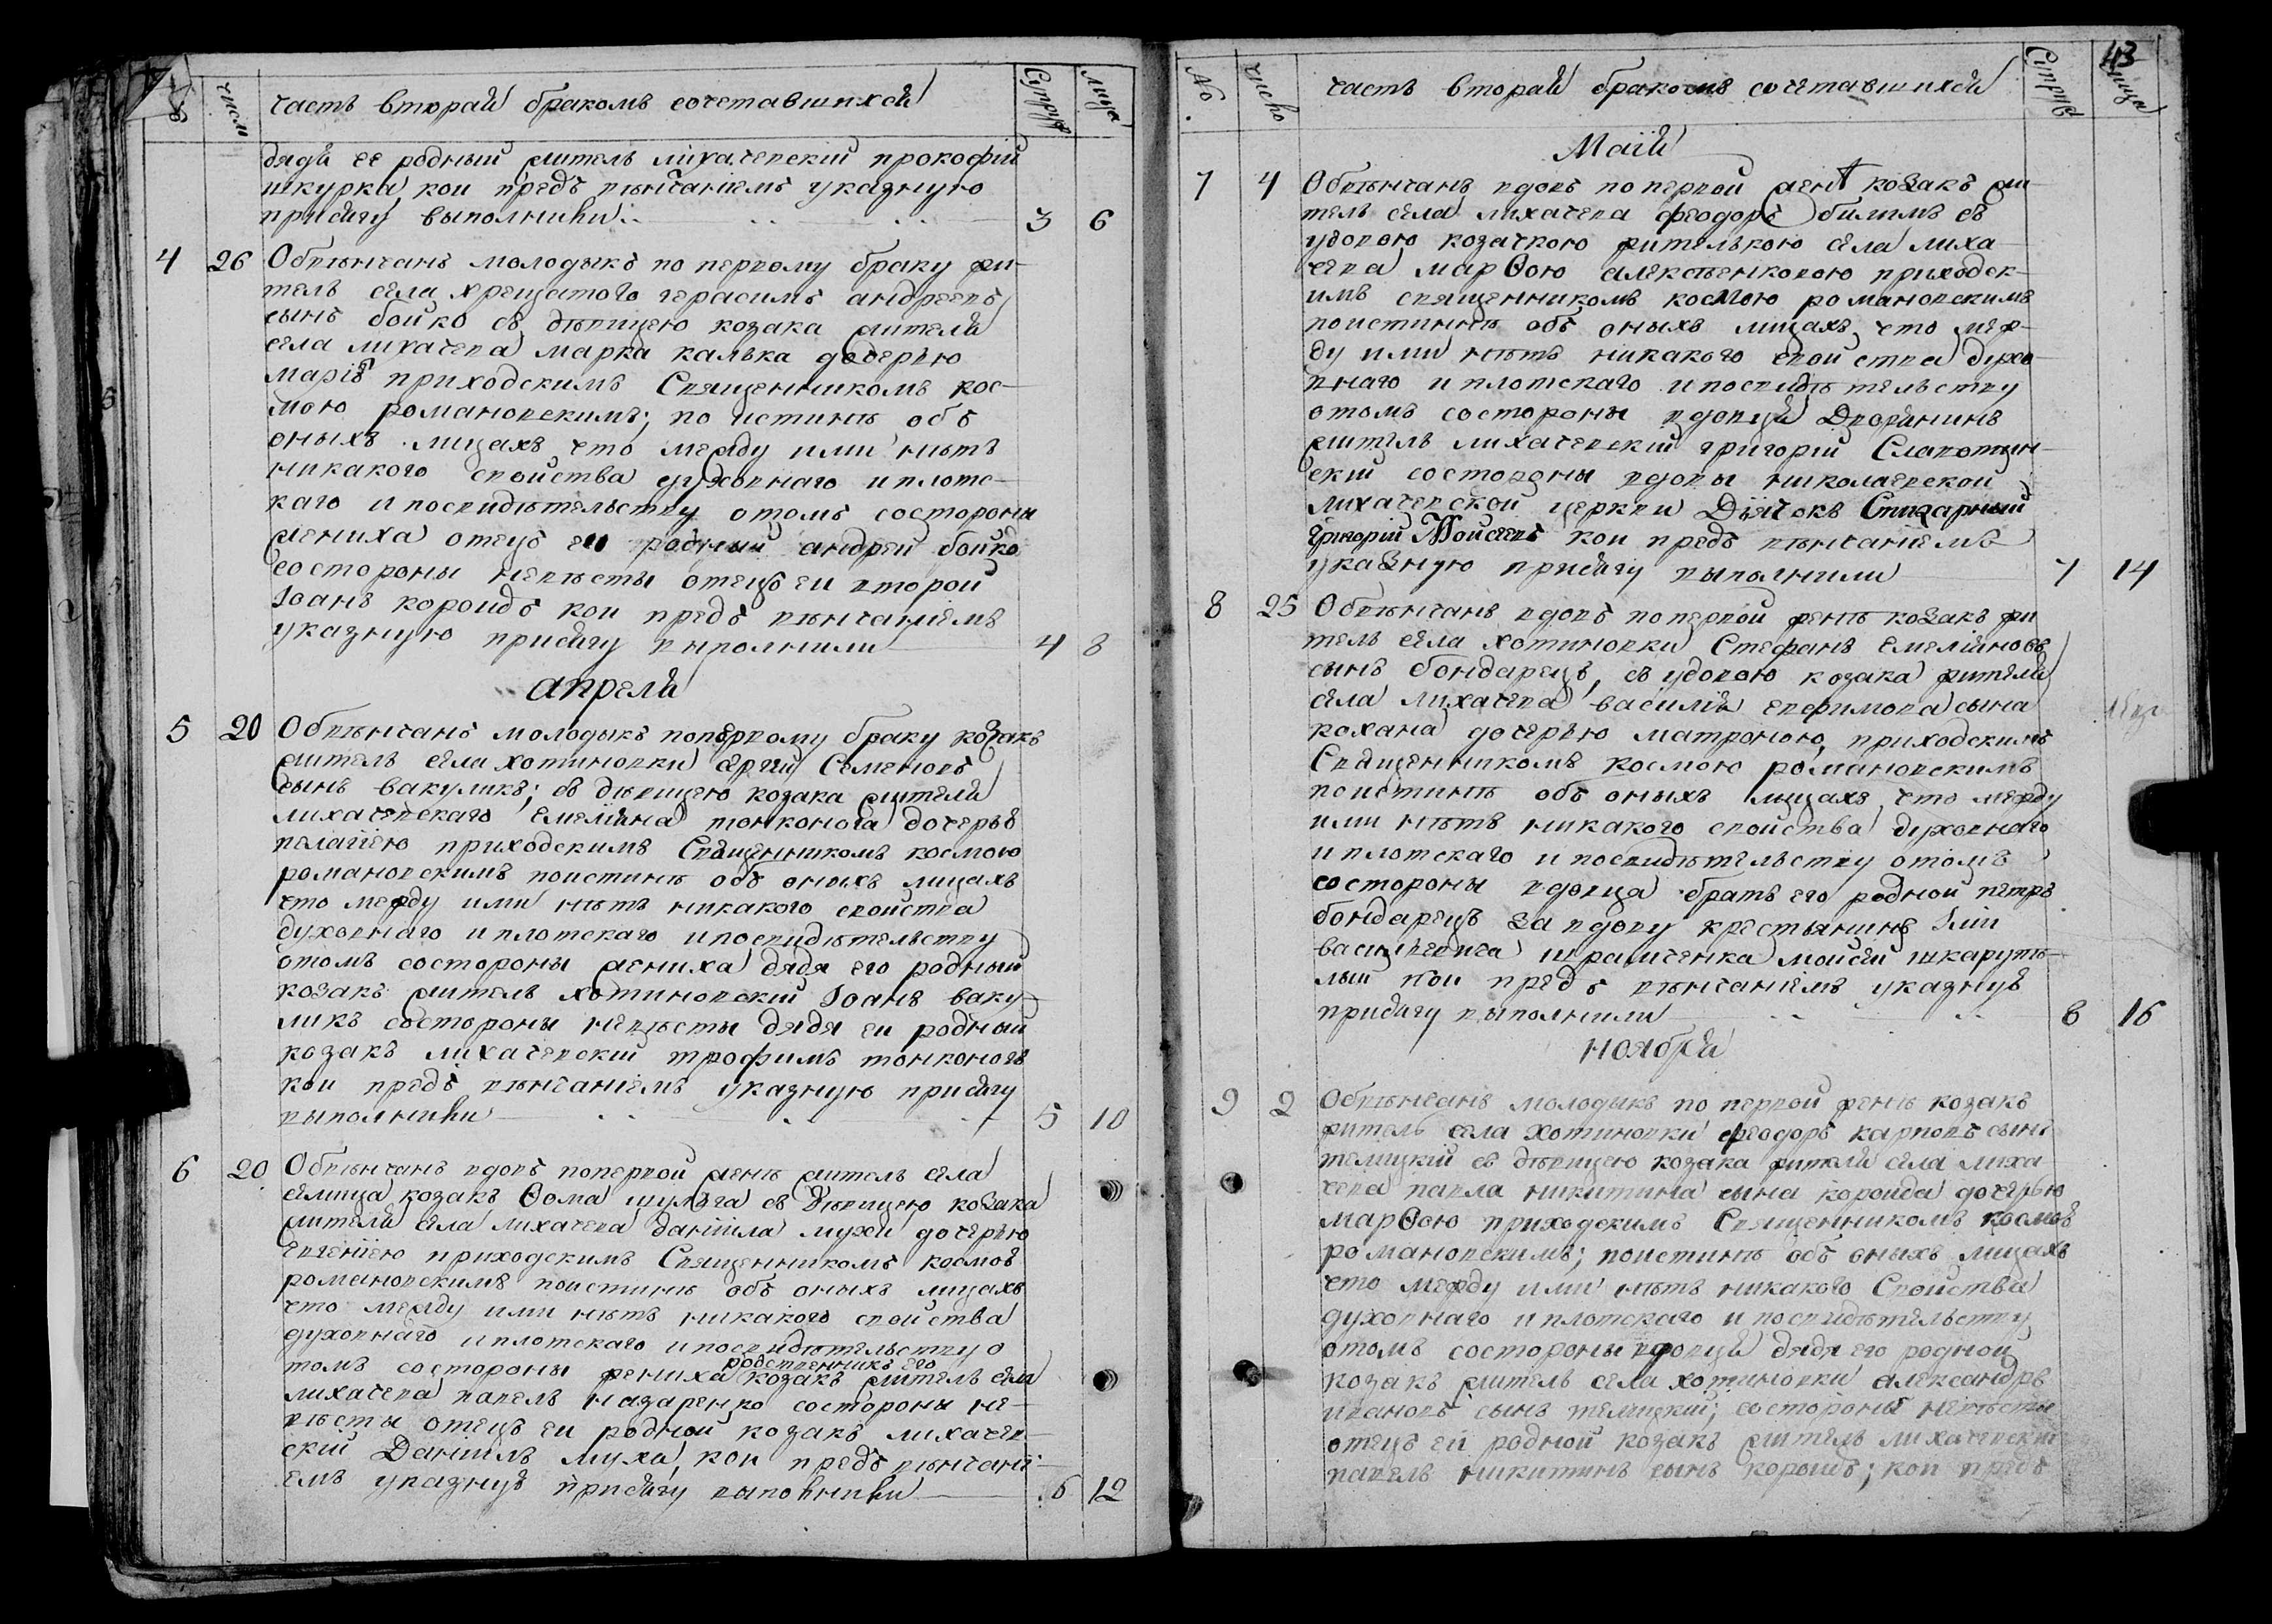 № число часть вторая бракомъ сочетавшихся Супруж лица
дядя ее родный житель лихачевский прокофий
шкурка, кои предъ вѣнчаніемъ указную
присягу выполнили 3 6
4 26 Обвѣнчанъ молодыкъ по первому браку жи-
тель села хрещатого герасимъ андреевъ
сынъ бойко съ дѣвицею козака жителя
села лихачева марка калька дочерью
маріею приходскимъ Священникомъ кос-
мою романовскимъ; по истинѣ объ
оныхъ лицахъ что между ими нѣтъ
никакого свойства духовнаго и плотс-
каго и посвидѣтельству отомъ состороны
жениха отецъ его родный андрей бойко
состороны невѣсты отецъ еи второй
Іоанъ короидъ кои предъ вѣнчаніемъ
указную присягу выполнили 4 8
апреля
5 20 Обвѣнчанъ молодыкъ попервому браку козакъ
житель села хотиновки Сергій Семеновъ
сынъ вакуликъ; съ дѣвицею козака жителя
лихачевскаго Емеліяна тонконога дочерью
пелагіею приходскимъ Священникомъ космою
романовскимъ поистинѣ объ оныхъ лицахъ
что между ими нѣтъ никакого свойства
духовнаго и плотскаго и посвидѣтельству
отомъ состороны жениха дядя его родный
козакъ житель хотиновский Іоанъ ваку-
ликъ состороны невѣсты дядя еи родный
козакъ лихачевский трофимъ тонконогъ
кои предъ вѣнчаніемъ указную присягу
выполнили 5 10
6 20 Обвѣнчанъ вдовъ попервой женѣ житель села
селища козакъ Ѳома шульга съ дѣвицею козака
жителя села лихачева даніила мухи дочерью
Евгеніею приходскимъ Священникомъ космою
романовскимъ поистинѣ объ оныхъ лицахъ
что между ими нѣтъ никакого свойства
духовнаго и плотскаго и посвидѣтельству о
родственникъ его
томъ состороны жениха козакъ житель села
лихачева павелъ назаренко состороны не-
вѣсты отецъ еи родной козакъ лихачев-
ский Даніилъ муха, кои предъ вѣнчані-
емъ указную присягу выполнили 6 12
43
№ число часть вторая бракомъ сочетавшихся Супруж лица
Маія
7 4 Обвѣнчанъ вдовъ попервой женѣ козакъ жи-
тель села лихачева феодоръ билимъ съ
удовою козачкою жителькою села лиха-
чева марѳою алексѣенковою приходск-
имъ священникомъ космою романовскимъ
поистиннѣ объ оныхъ лицахъ, что меж-
ду ими нѣтъ никакого свойства духо-
внаго и плотскаго и посвидѣтельству
отомъ состороны вдовца Дворянинъ
житель лихачевский григорій Славотин-
ский состороны вдовы николаевской
лихачевской церкви Дьячокъ
Григорій Мойсеевъ кои предъ вѣнчаніемъ
указную присягу выполнили 7 14
8 25 Обвѣнчанъ вдовъ попервой женѣ козакъ жи
тель села хотиновки Стефанъ Емеліяновъ
сынъ бондарецъ, съ удовою козака жителя
села лихачева василія евфимова сына
кохана дочерью матроною, приходскимъ
Священникомъ космою романовскимъ
поистиннѣ объ оныхъ лицахъ, что между
ими нѣтъ никакого свойства духовнаго
и плотскаго и посвидѣтельству отомъ
состороны вдовца братъ его родной петръ
бондарецъ за вдову крестьянинъ Іліи
василіевича мойсей шкарупѣ-
лый кои предъ вѣнчаніемъ указную
присягу выполнили 8 16
ноября
9 2 Обвѣнчанъ молодикъ по первой женѣ козакъ
житель села хотиновки феодоръ карповъ сынъ
телицкій съ дѣвицею козака жителя села лиха
чева павла никитина сына короида дочерью
марѳою приходскимъ Священникомъ космою
романовскимъ; поистинѣ объ оныхъ лицахъ
что между ими нѣтъ никакого Свойства
духовнаго и плотскаго и посвидѣтельству
отомъ состороны вдовца дядя его родной
козакъ житель села хотиновки александръ
ивановъ сынъ телицкій; состороны невѣсты
отецъ еи родной козакъ житель лихачевский
павелъ никитинъ сынъ короидъ; кои предъ